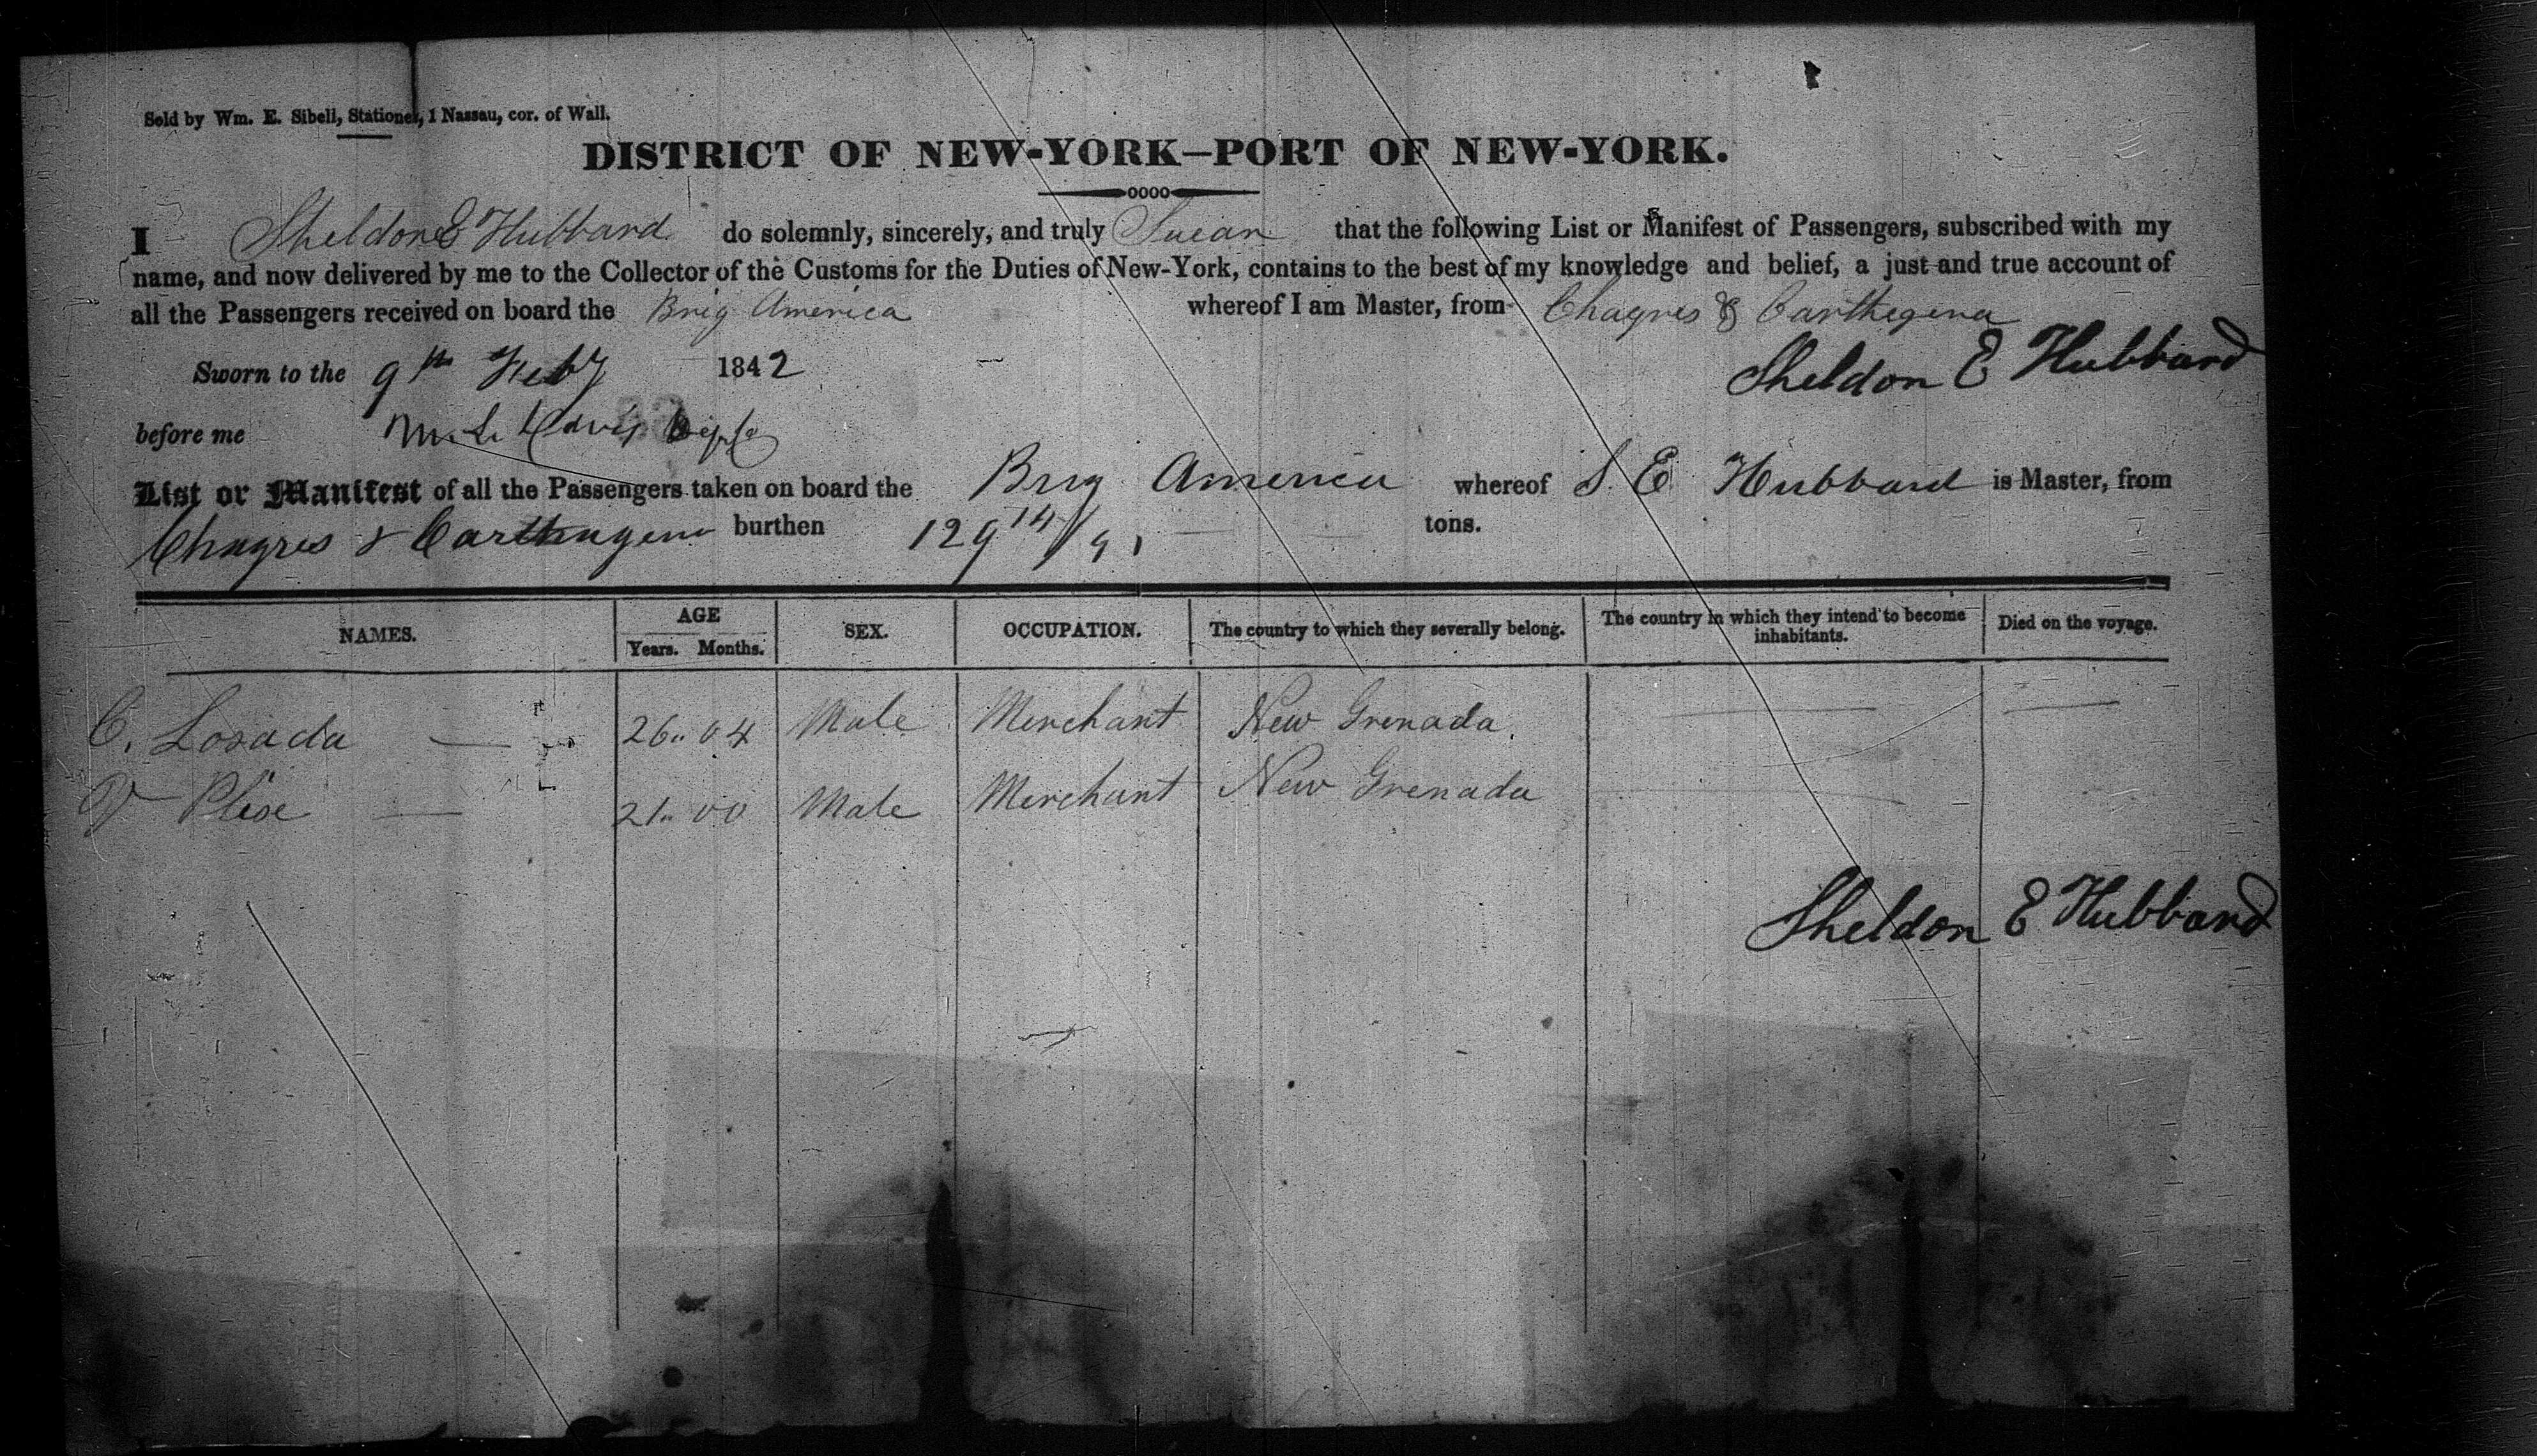 Sold by Wm. E. Sibell, Stationer, 1 Nassau, cor. of Wall.
DISTRICT OF NEW-YORK—PORT OF NEW-YORK.
I Sheldon E Hubbard do solemnly, sincerely, and truly Swear that the following List or Manifest of Passengers, subscribed with my
name, and now delivered by me to the Collector of the Customs for the Duties of New-York, contains to the best of my knowledge and belief, a just and true account of
all the Passengers received on board the Brig America whereof I am Master, from Chagres & Carthegena
Sworn to the 9th Feby 1842 Sheldon E Hubbard
before me M. L. Davis
List or Manifest of all the Passengers taken on board the Brig America whereof S. E Hubbard is Master, from
Chagres & Carthagena burthen 129 14/91 tons.
NAMES. AGE Years. Months. SEX. OCCUPATION. The country to which they severally belong. The country in which they intend to become inhabitants. Died on the voyage.
C. Losada 26 04 Male Merchant New Grenada
21 00 Male Merchant New Grenada
Sheldon E Hubbard